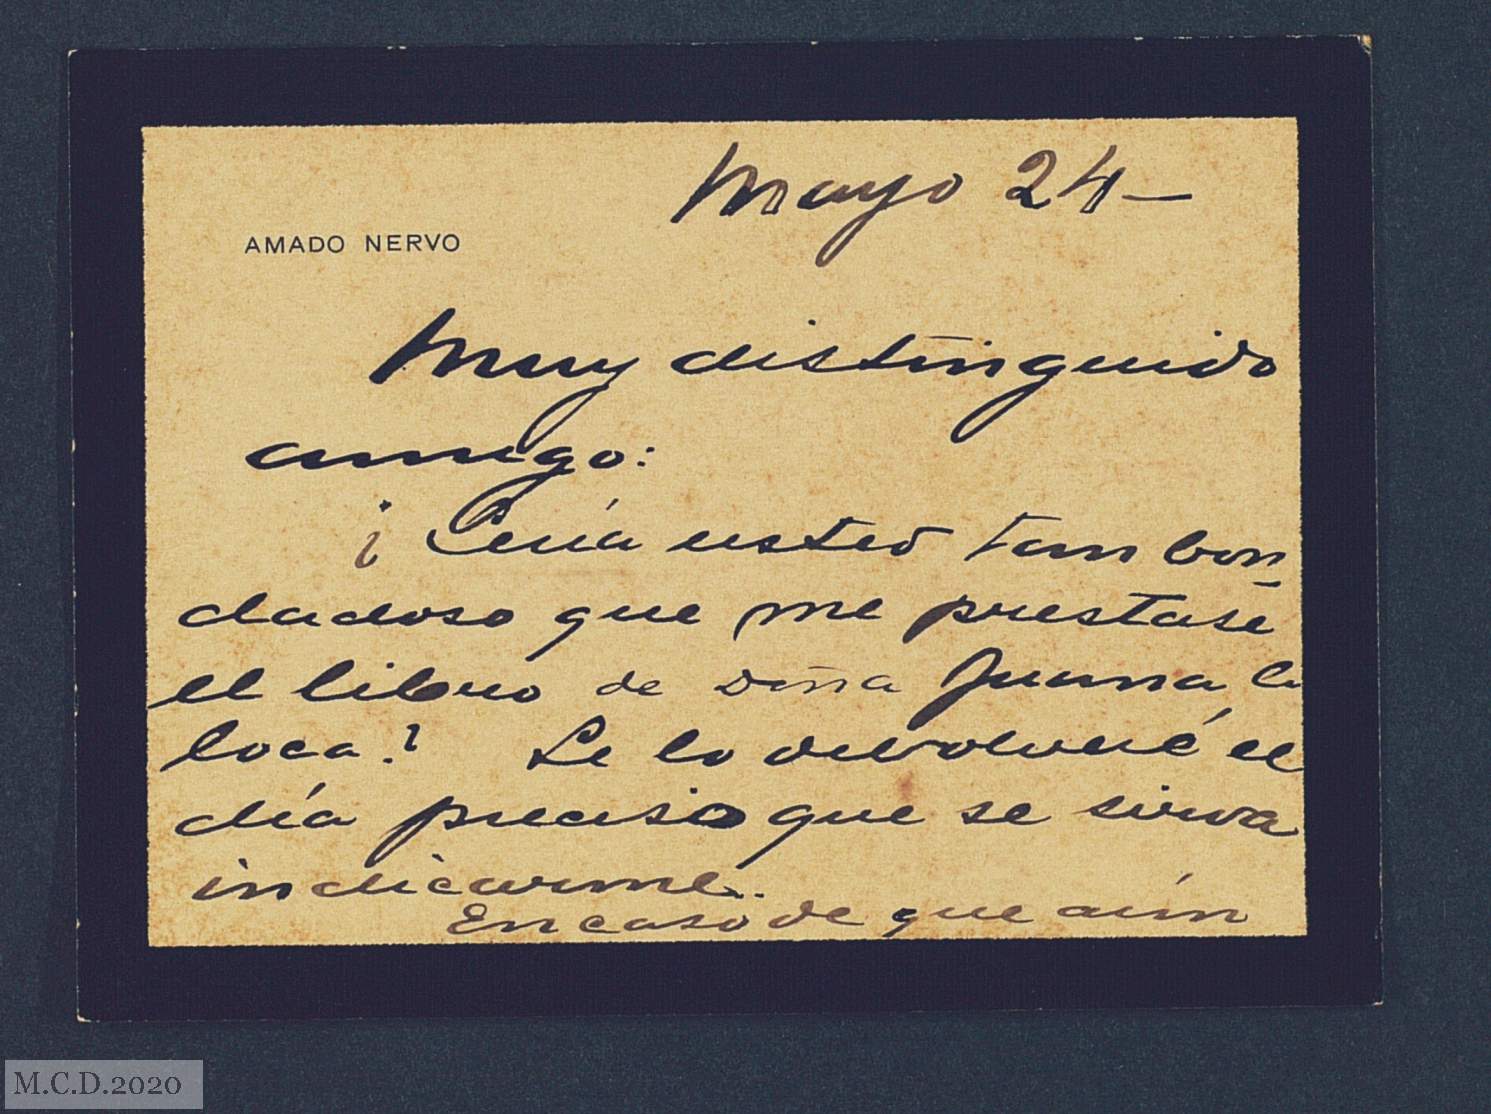 Mayo 24–
AMADO NERVO
Muy distinguido
amigo:
¿Sería usted tan bon-
dadoso que me prestase
el libro de doña Juana la
loca? Se lo devolveré el
día preciso que se sirva
indicarme.
En caso de que aún
M.C.D.2020